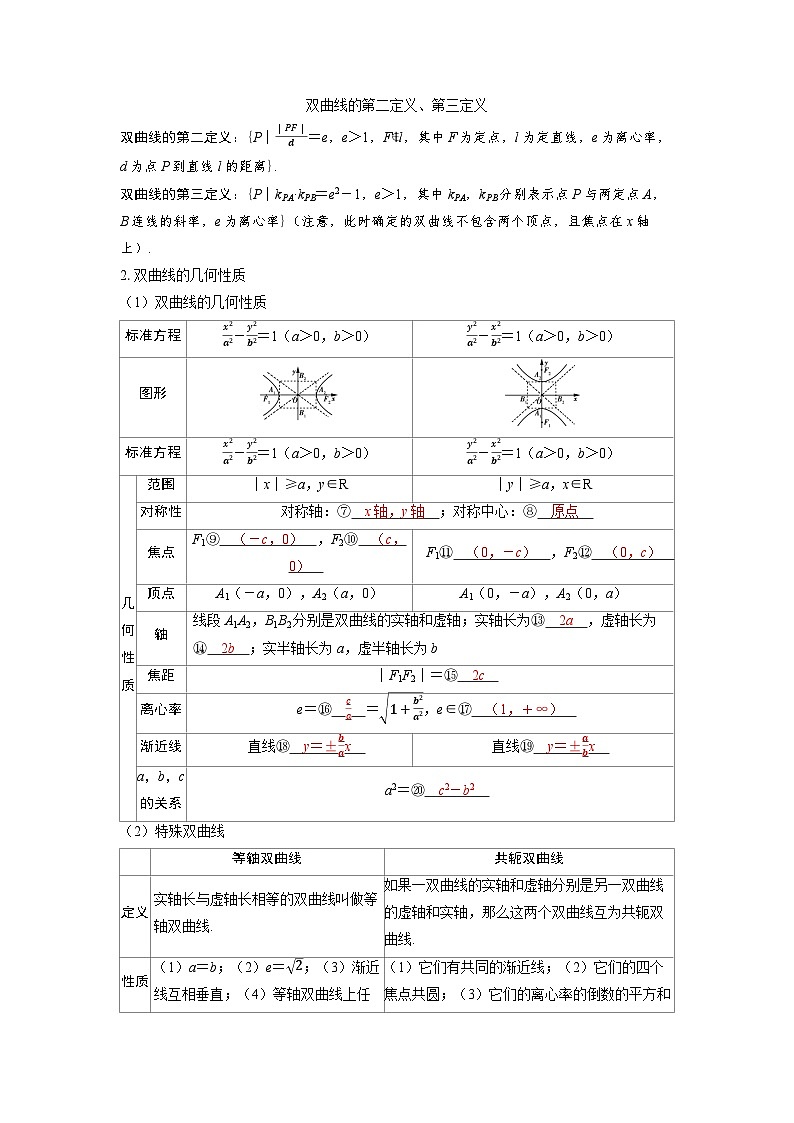 双曲线的第二定义、第三定义
双曲线的第二定义：{P|\frac{|PF|}{d}＝e，e＞1，F∉l，其中F为定点，l为定直线，e为离心率，
d为点P到直线l的距离}.
双曲线的第三定义：{P|k_{PA}·k_{PB}＝e²－1，e＞1，其中k_{PA}，k_{PB}分别表示点P与两定点A，
B连线的斜率，e为离心率}（注意，此时确定的双曲线不包含两个顶点，且焦点在x轴
上）.
2. 双曲线的几何性质
（1）双曲线的几何性质
标准方程 \frac{x²}{a²}－\frac{y²}{b²}＝1（a＞0，b＞0） \frac{y²}{a²}－\frac{x²}{b²}＝1（a＞0，b＞0）
图形
标准方程 \frac{x²}{a²}－\frac{y²}{b²}＝1（a＞0，b＞0） \frac{y²}{a²}－\frac{x²}{b²}＝1（a＞0，b＞0）
几何性质
范围 |x|≥a，y∈R |y|≥a，x∈R
对称性 对称轴：⑦ x轴，y轴 ；对称中心：⑧ 原点
焦点 F₁⑨ （－c，0） ，F₂⑩ （c，
0） F₁⑪ （0，－c） ，F₂⑫ （0，c）
顶点 A₁（－a，0），A₂（a，0） A₁（0，－a），A₂（0，a）
轴 线段A₁A₂，B₁B₂分别是双曲线的实轴和虚轴；实轴长为⑬ 2a ，虚轴长为
⑭ 2b ；实半轴长为a，虚半轴长为b
焦距 |F₁F₂|＝⑮ 2c
离心率 e＝⑯ \frac{c}{a} ＝\sqrt{1＋\frac{b²}{a²}}，e∈⑰ （1，＋∞）
渐近线 直线⑱ y＝±\frac{b}{a}x 直线⑲ y＝±\frac{a}{b}x
a，b，c
的关系 a²＝⑳ c²－b²
（2）特殊双曲线
等轴双曲线 共轭双曲线
定义 实轴长与虚轴长相等的双曲线叫做等
轴双曲线. 如果一双曲线的实轴和虚轴分别是另一双曲线
的虚轴和实轴，那么这两个双曲线互为共轭双
曲线.
性质 （1）a＝b；（2）e＝\sqrt{2}；（3）渐近
线互相垂直；（4）等轴双曲线上任 （1）它们有共同的渐近线；（2）它们的四个
焦点共圆；（3）它们的离心率的倒数的平方和